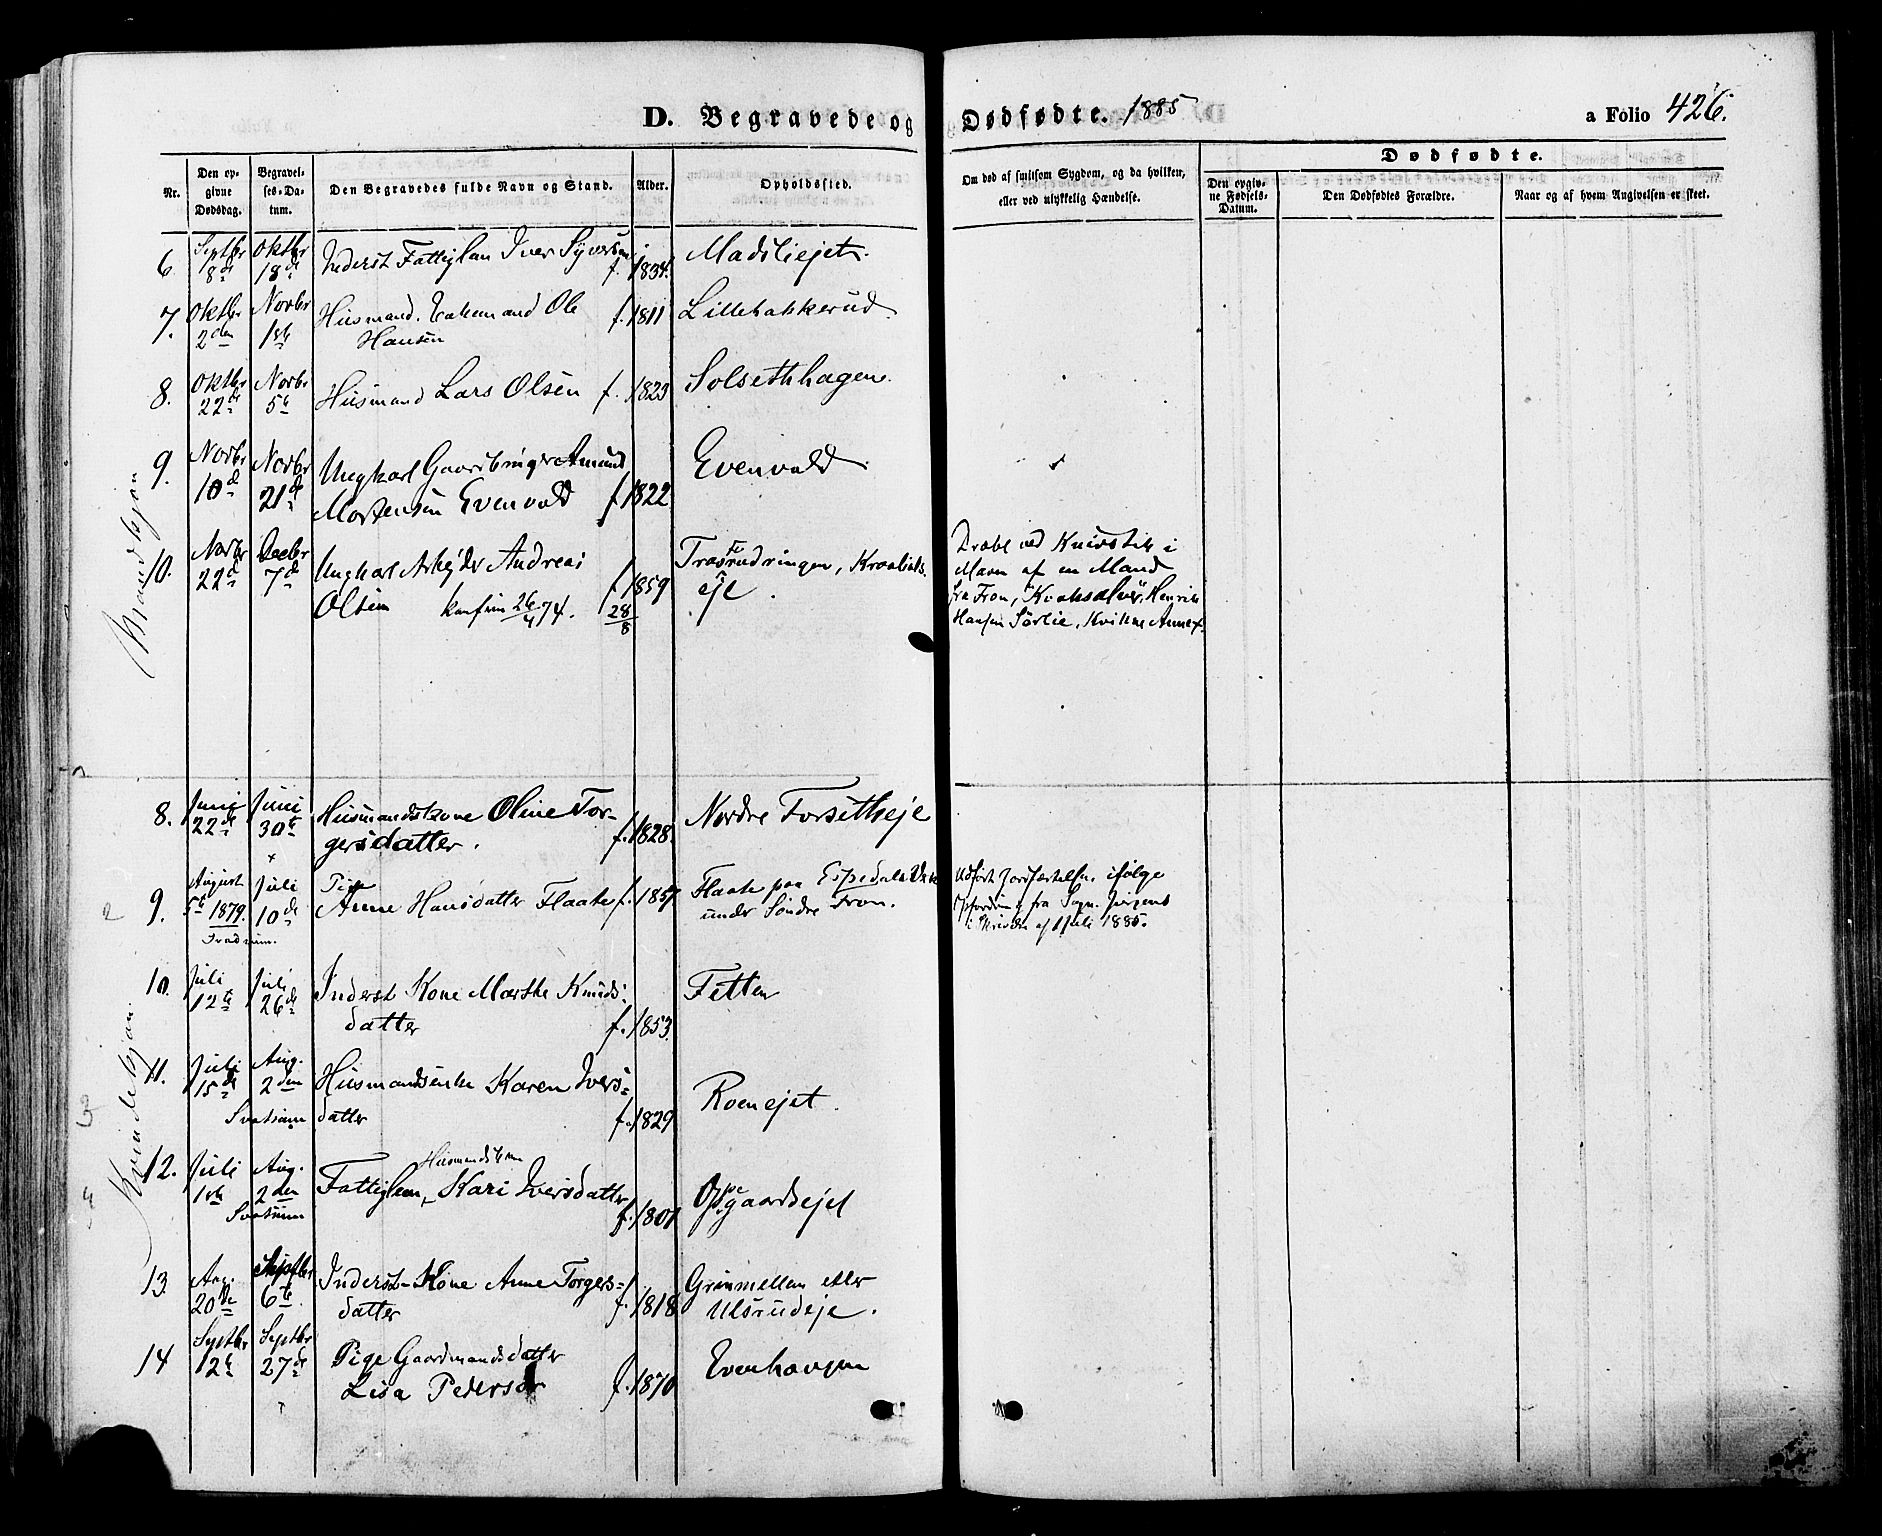 D. Begravede og Dødfødte. 1885
a Folio 426.
Nr.
Den opgivne Dødsdag.
Begravelses-Datum.
Den Begravedes fulde Navn og Stand.
Alder.
Opholdssted.
Om død af smitsom Sygdom, og da hvilken, eller ved ulykkelig Hændelse.
Dødfødte.
Den opgivne Fødsels-Datum.
Den Dødfødtes Forældre.
Naar og af hvem Angivelsen er skeet.
Mandkjøn
6. Septbr 8de Oktbr 18de Inderst Fattiglem Iver Syversen f. 1834. Madsliejet.
7. Oktbr 2den Novbr 1ste Husmand, Ole f. 1811 Lillehakkerud
Hansen
8. Oktbr 22de Novbr 5te Husmand Lars Olsen f. 1823 Solsethhagen.
9. Novbr 10de Novbr 21de Ungkarl Amund Evenvold
Mortensen Evenvold f. 1822
10. Novbr 22de Decbr 7de Ungkarl Arbejder Andreas f. 1859
Olsen konfirm 26/4 74. 28/8
eje.
Dræbt ved Knivstik i
Maven af en Mand
fra Fron, Henrik
Hansen Sørlie, Kvikne Annex.
Kvindekjøn
8. Juni 22de Juni 30te Husmandskone Oline Tor-
gersdatter. f. 1828. Nordre Forsetheje
9. August 5te 1879. Juli 10de Pige
Anne Hansdatter Flaate f. 1857 Flaate paa
under Søndre Fron.
Udført ifølge
fra
af 1 Juli 1885.
10. Juli 12te Juli 26de Inderst Kone Marthe Knuds-
datter f. 1853. Fetten
11. Juli 15de Aug. 2den Husmandsenke Karen Ivers-
Svatsum datter f. 1829 Roenejet.
12. Juli 1ste Aug. 2den Husmandskone
Fattiglem, Kari Iversdatter
Svatsum f. 1801 Opgaardsejet
13. Aug. 20de Septbr 6te Inderst-Kone Anne Torges-
datter f. 1818 Grimmellen eller
Ulsrudeje.
14 Septbr 12te Septbr 27de Pige Gaardmandsdatter
Lisa Pedersdr f. 1870 Evenhaugen